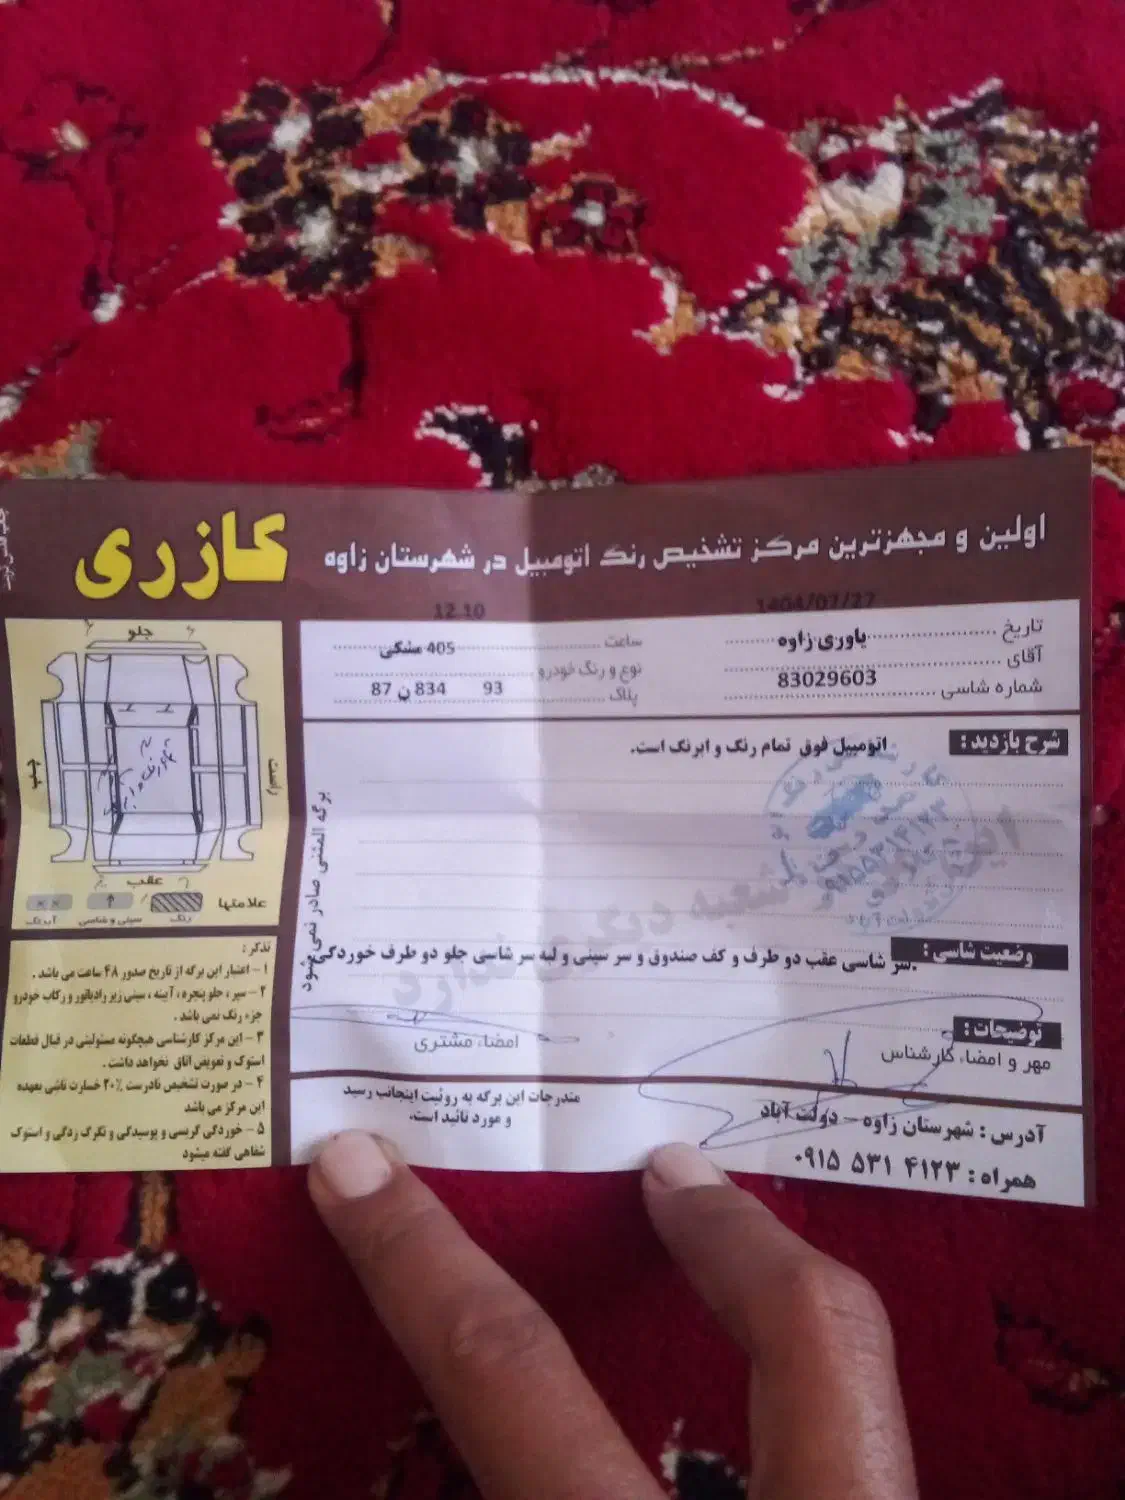 کازری
اولین و مجهزترین مرکز تشخیص رنگ اتومبیل در شهرستان زاوه
1404/07/27
12 10
تاریخ
ساعت
آقای یاوری زاوه
نوع و رنگ خودرو 405 مشکی
شماره شاسی 83029603
پلاک 93 834 ن 87
شرح بازدید :
اتومبیل فوق تمام رنگ و ابرنگ است.
برگه المثنی صادر نمی شود
شعبه دیگری ندارد
وضعیت شاسی :
سر شاسی عقب دو طرف و کف صندوق و سر سینی و لبه سر شاسی جلو دو طرف خوردگی.
توضیحات :
مهر و امضاء کارشناس
امضاء مشتری
مندرجات این برگه به روئیت اینجانب رسید
و مورد تائید است.
آدرس : شهرستان زاوه – دولت آباد
همراه : ۰۹۱۵ ۵۳۱ ۴۱۲۳
جلو
راست
چپ
عقب
علامتها
رنگ
سینی و شاسی
آبرنگ
تذکر :
۱ – اعتبار این برگه از تاریخ صدور ۴۸ ساعت می باشد .
۲ – سپر ، جلو پنجره ، آیینه ، سینی زیر رادیاتور و رکاب خودرو
جزء رنگ نمی باشد .
۳ – این مرکز کارشناسی هیچگونه مسئولیتی در قبال قطعات
استوک و تعویض اتاق نخواهد داشت .
۴ – در صورت تشخیص نادرست ۲۰٪ خسارت ناشی بعهده
این مرکز می باشد
۵ – خوردگی گریسی و پوسیدگی و تگرک زدگی و استوک
شفاهی گفته میشود